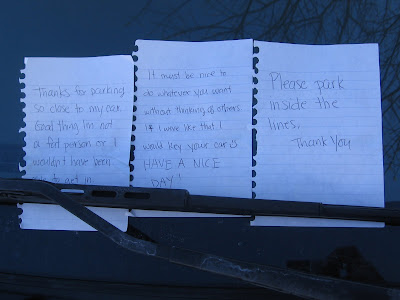 Thanks for parking
so close to my car.
Good thing I'm not
a fat person or I
wouldn't have been
to get in
It must be nice to
do whatever you want
without thinking of others
If I were like that I
would key your car :)
HAVE A NICE
DAY!
Please park
inside the
lines.
Thank You